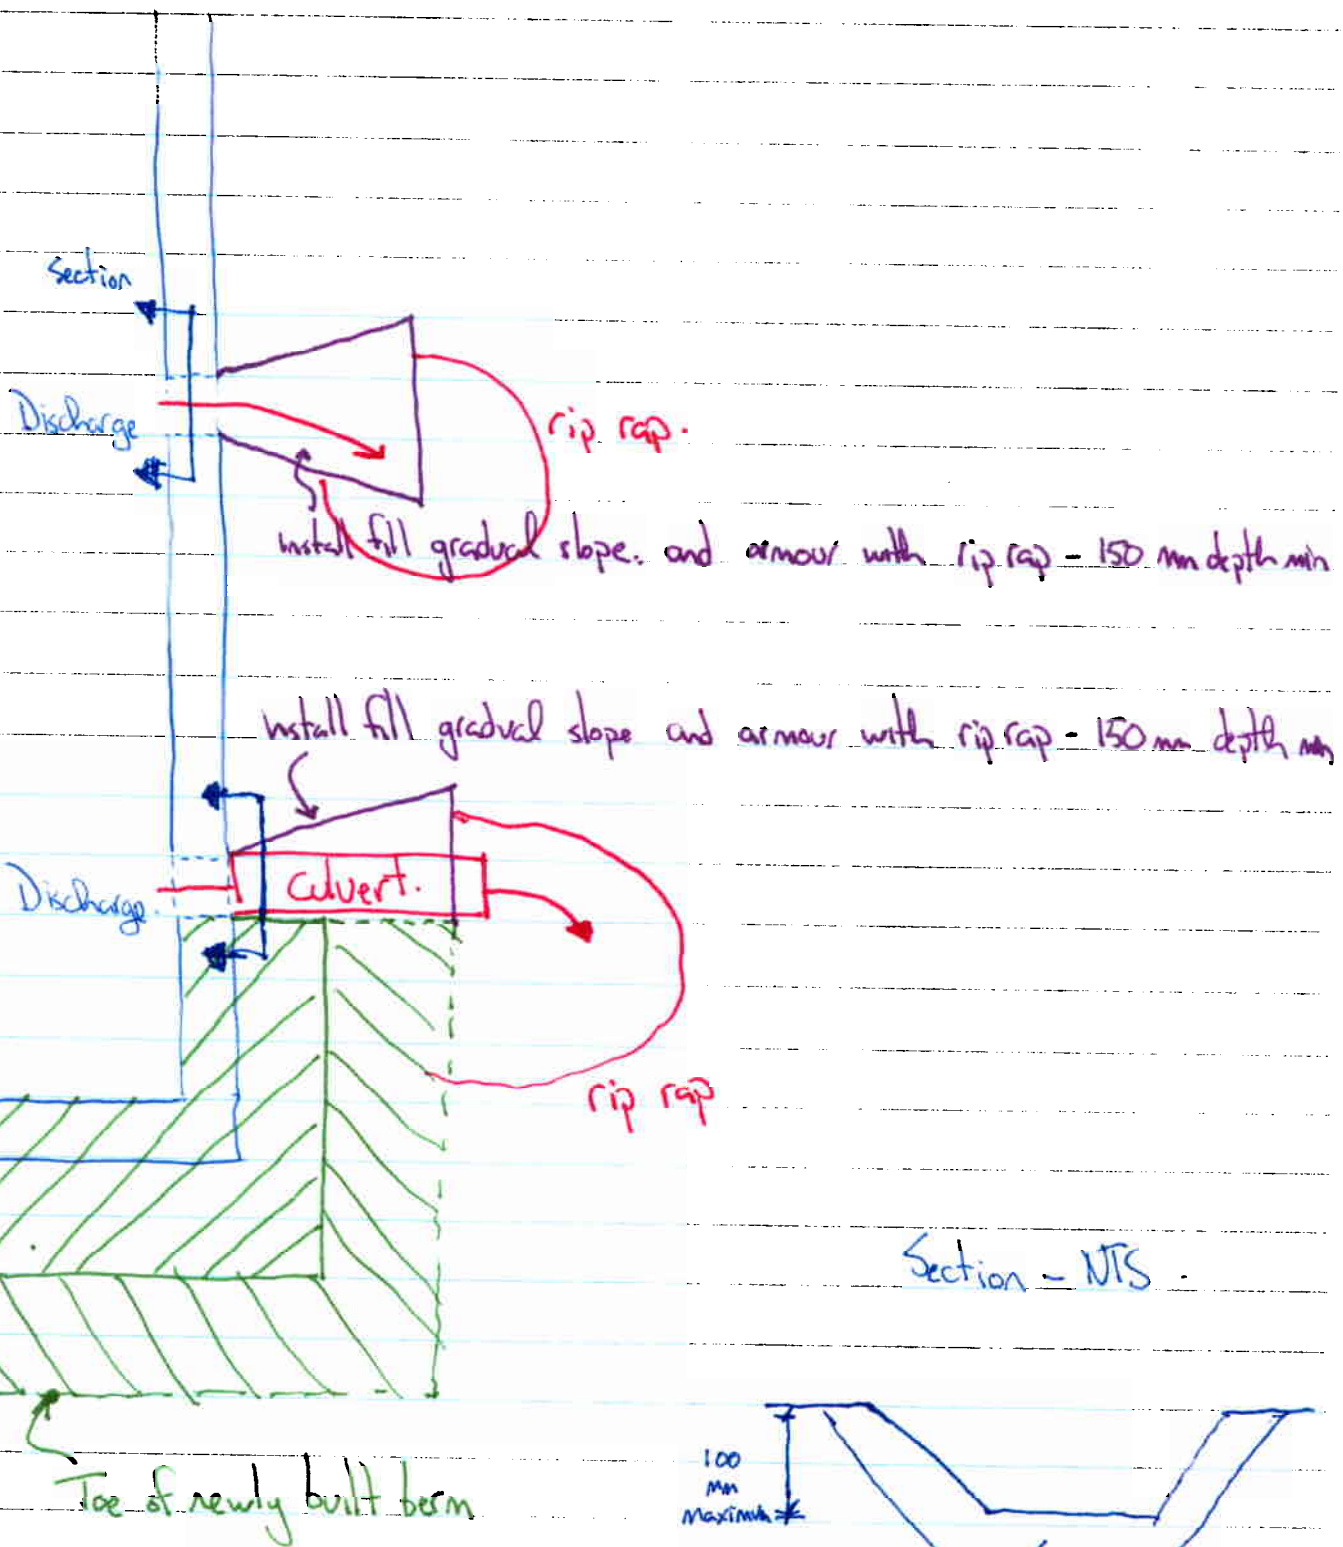 Section
Discharge
rip rap.
install fill gradual slope. and armour with rip rap - 150 mm depth min
install fill gradual slope and armour with rip rap - 150 mm depth min
Discharge
Culvert.
rip rap
Section - NTS.
100
mm
Maximum
Toe of newly built berm